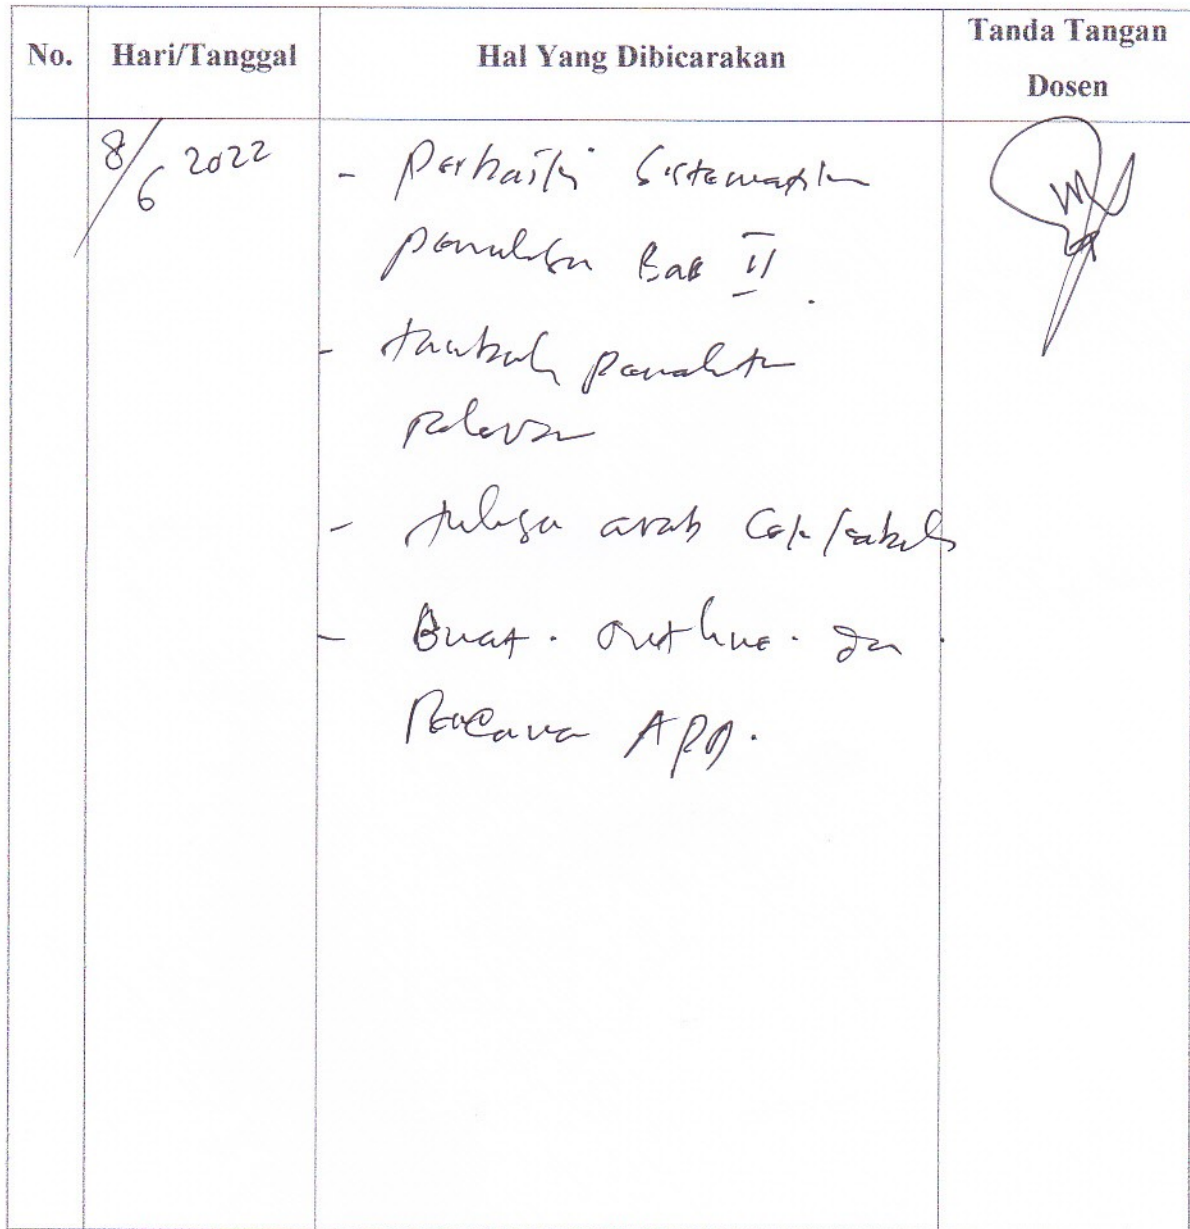 No. Hari/Tanggal Hal Yang Dibicarakan Tanda Tangan Dosen
8/6 2022
- Perbaiki Sistematika
penulisan Bab II.
- tambah penelitian
relevan
- tulisan arab Cek
- Buat. Outline. dan
Rencana APD.